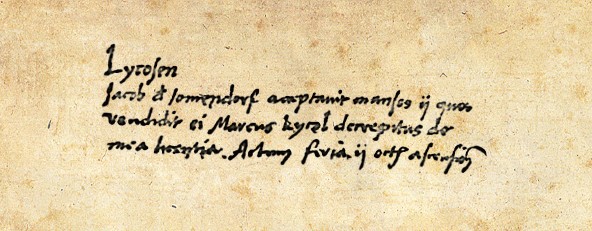 Lycosen
Jacob d Jomendorf acceptavit mansos ij quos
vendidit ei Marcus kyczl decrepitus de
mea licentia. Actum feria ij octa ascensio